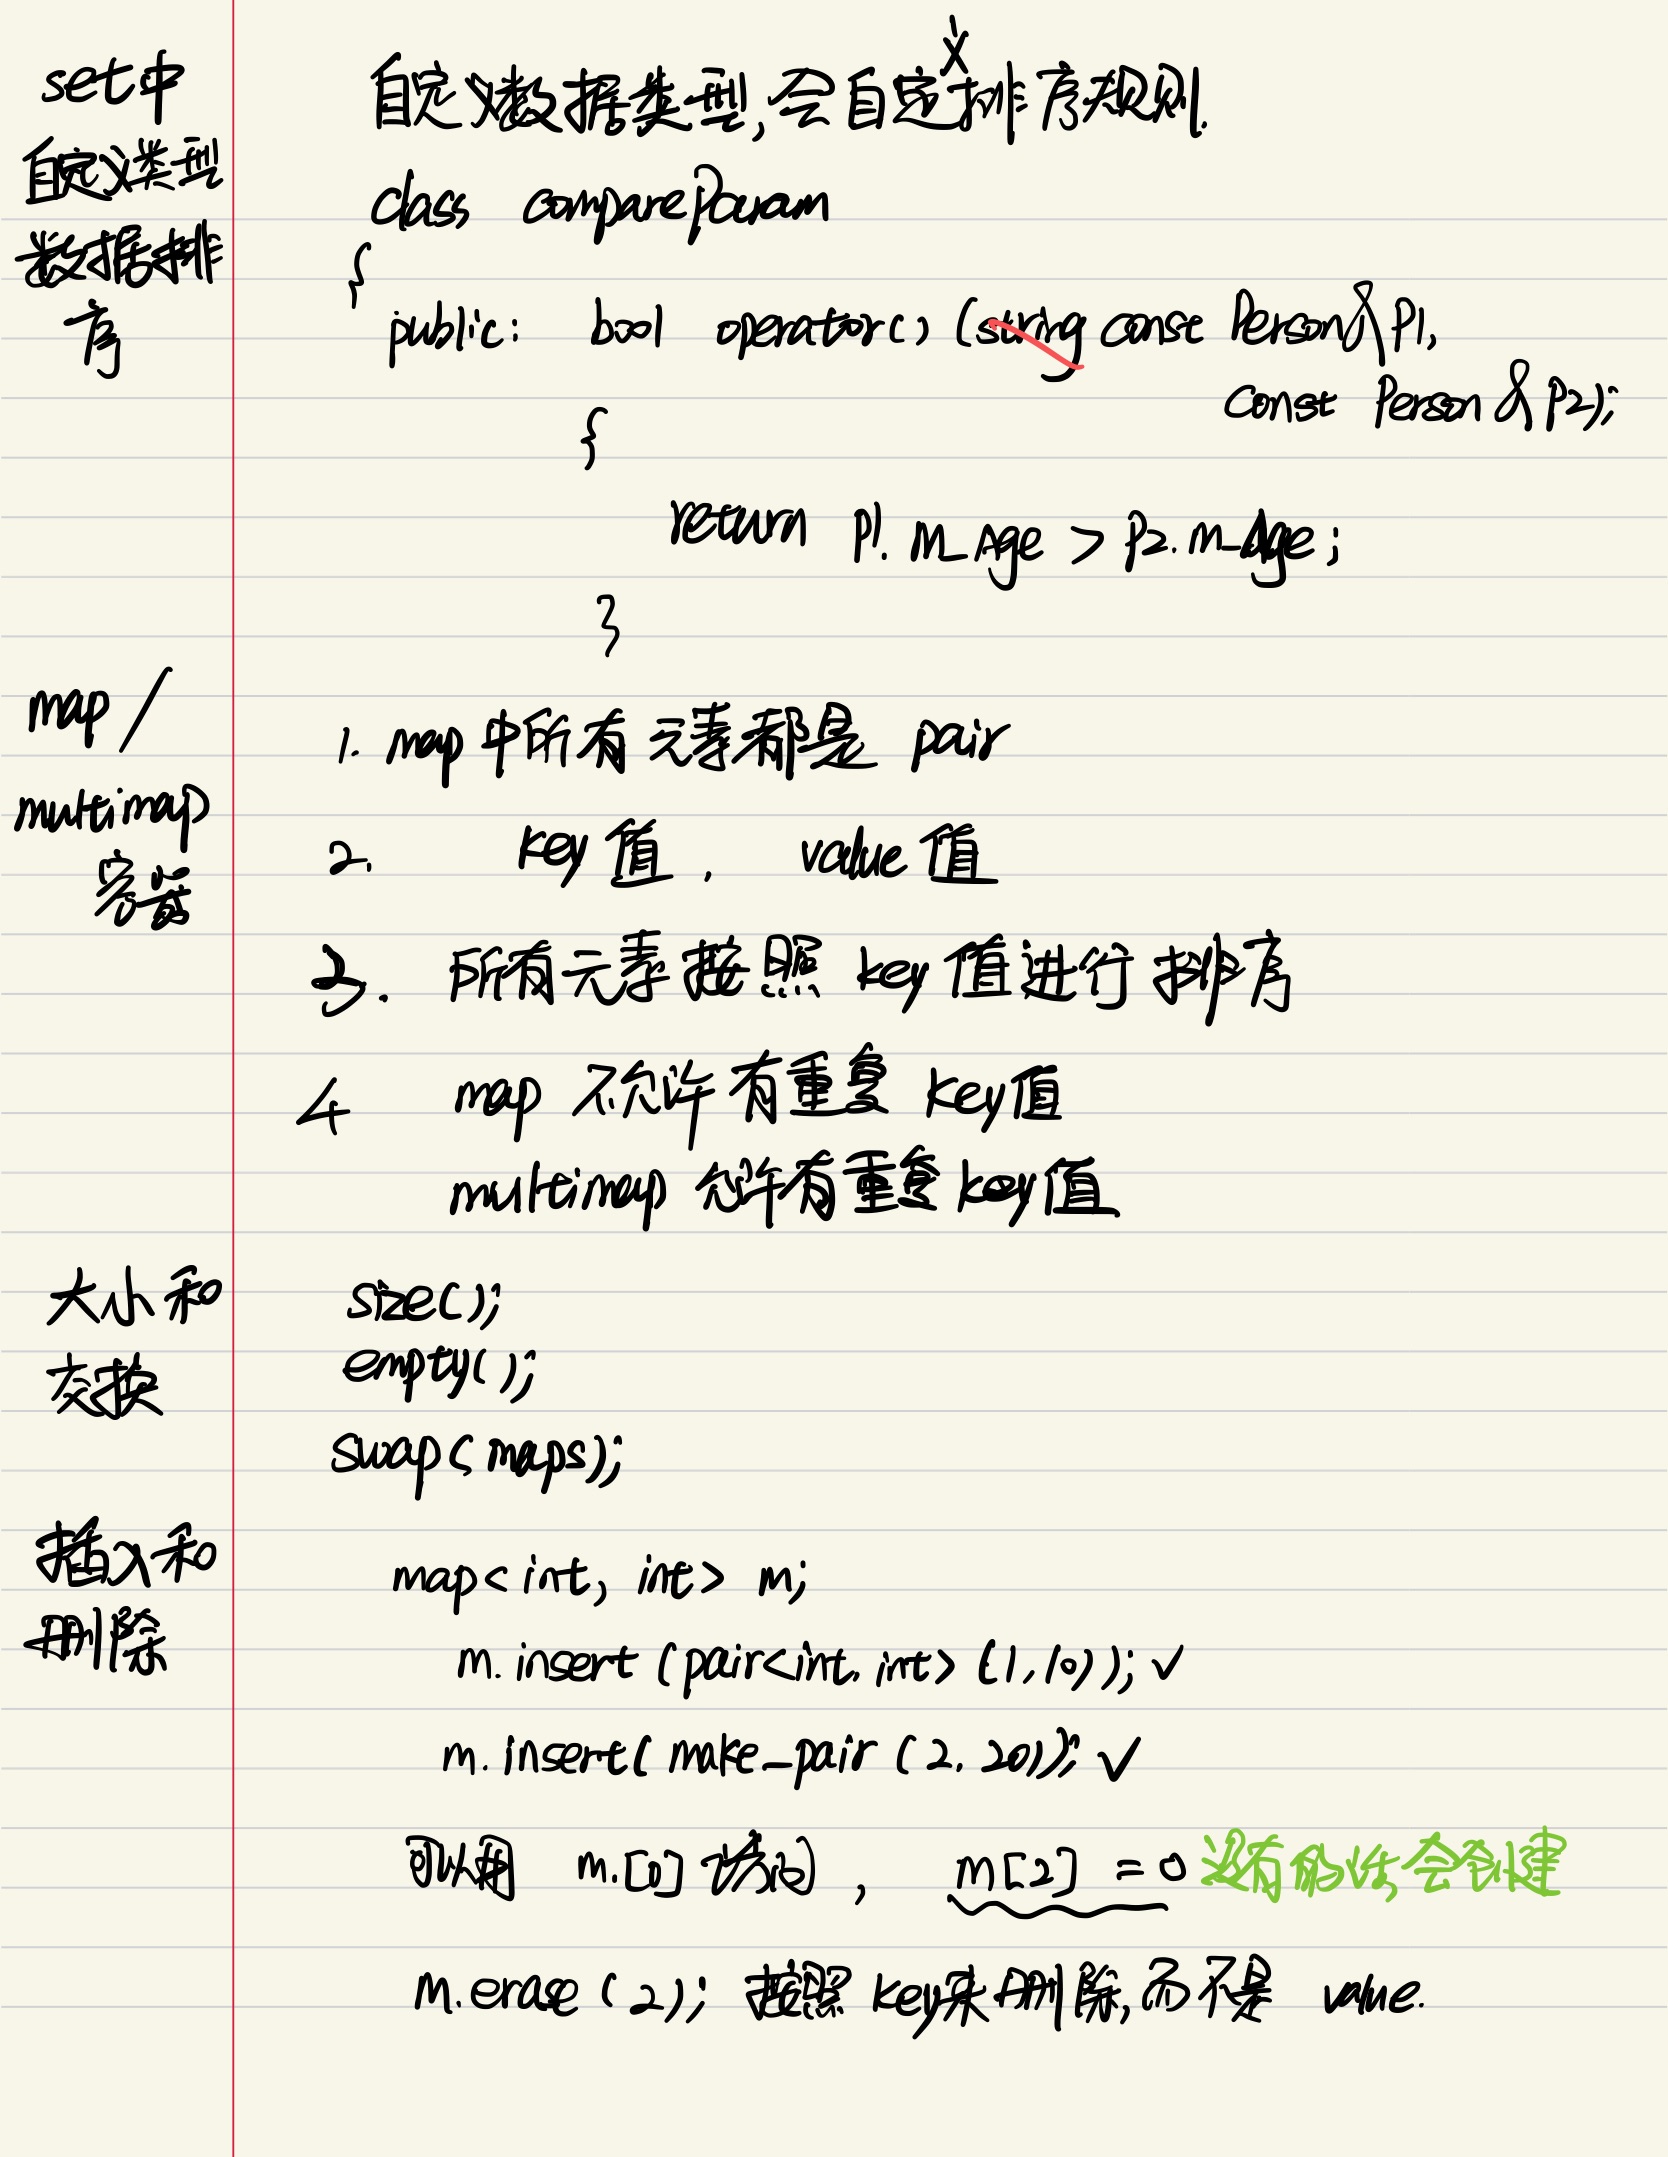 set中
自定义类型
数据排
序
自定义数据类型,会自定义排序规则.
class compareParam
{
public: bool operator() (string const Person& P1,
const Person & P2);
{
return P1. m_Age > P2. m_Age;
}
map /
multimap
容器
1. map中所有元素都是 pair
2. key值, value值
3. 所有元素按照 key值进行排序
4 map 不允许有重复 key值
multimap 允许有重复 key值
大小和
交换
size();
empty();
swap(maps);
插入和
删除
map<int, int> m;
m. insert (pair<int, int> (1,10)); ✓
m. insert( make_pair (2, 20)); ✓
可以用 m.[0] 访问, m[2] = 0 没有的话会创建
m.erase (2); 按照 key来删除,而不是 value.